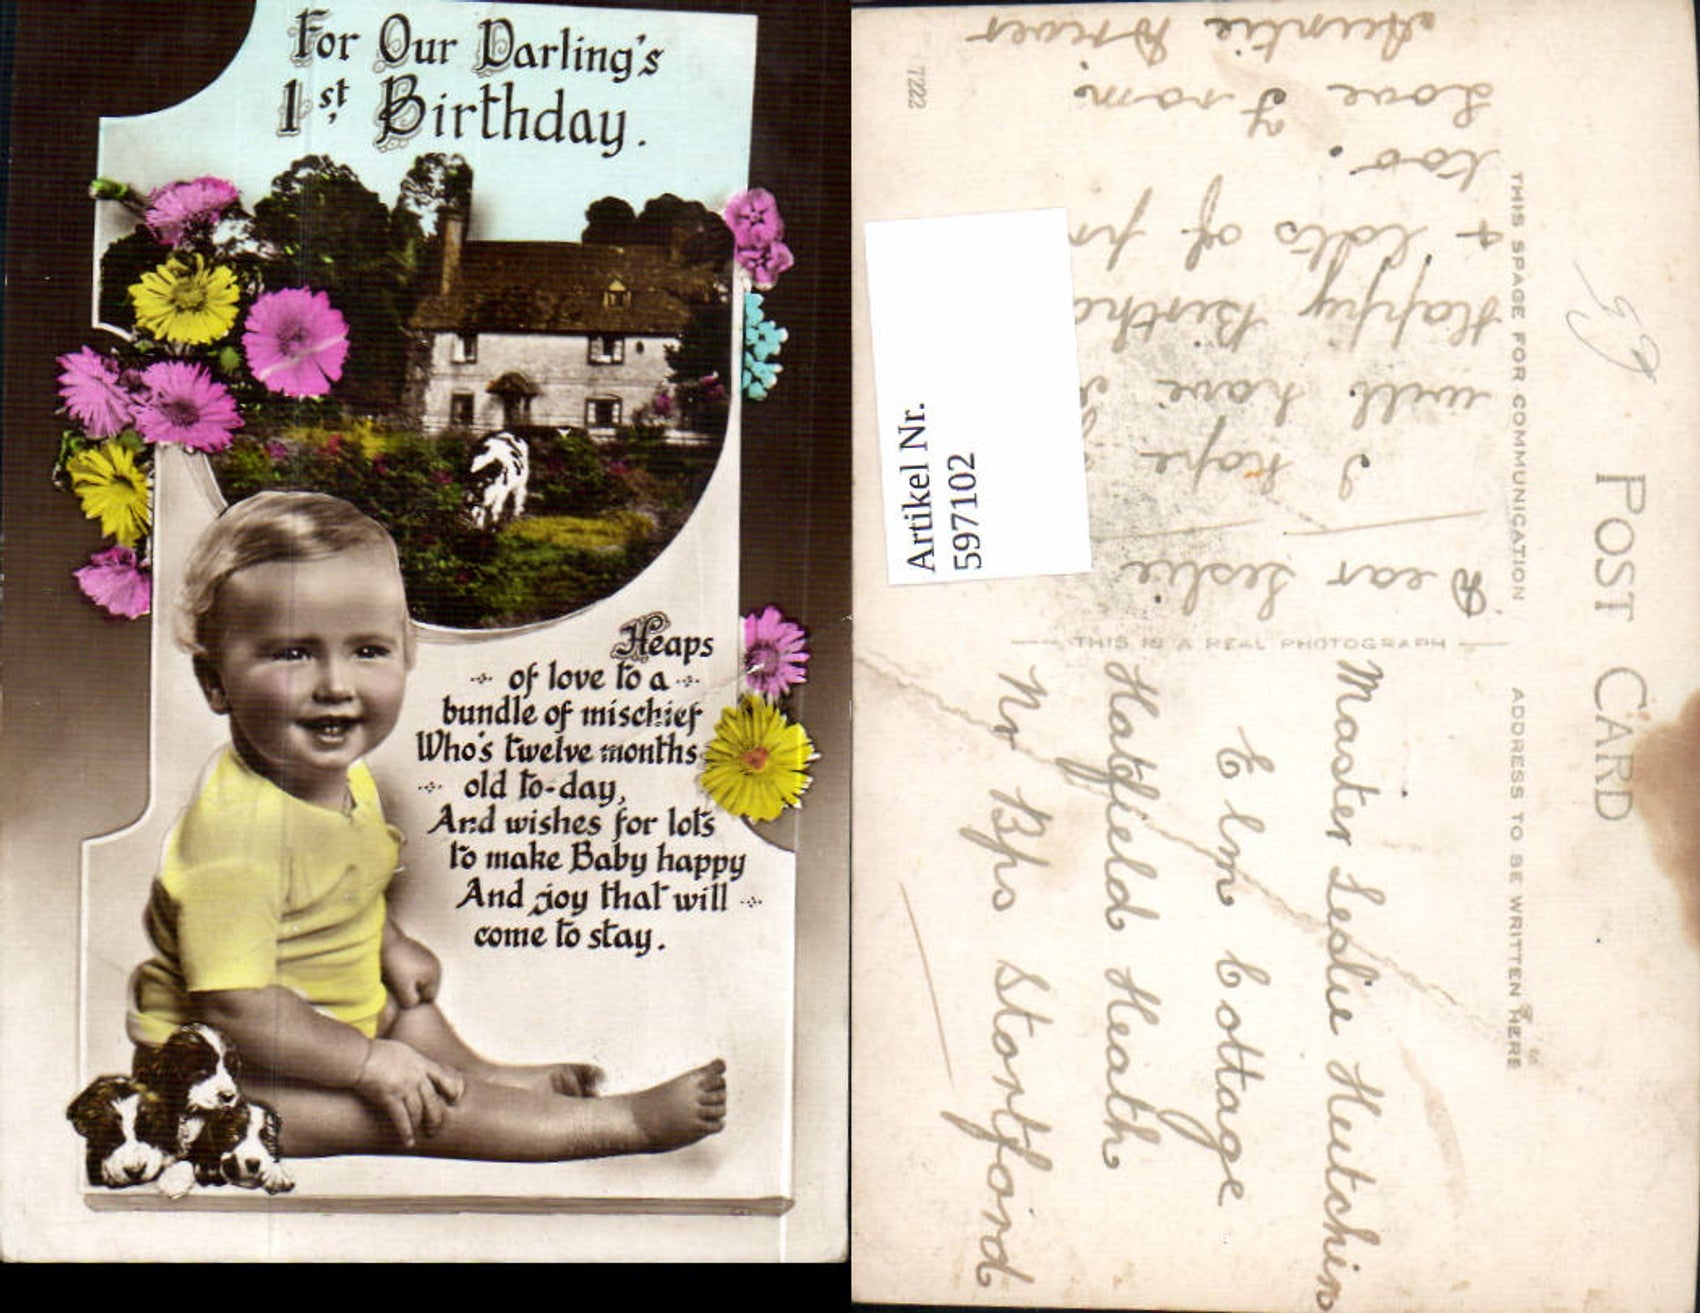 For Our Darling's
1st Birthday.
Heaps
of love to a
bundle of mischief
Who's twelve months
old to-day,
And wishes for lots
to make Baby happy
And joy that will
come to stay.
POST CARD
THIS SPACE FOR COMMUNICATION
ADDRESS TO BE WRITTEN HERE
THIS IS A REAL PHOTOGRAPH
7222
Dear Leslie
I hope
will have
Happy Birth
+ lots of
too.
Love From
Auntie
Master Leslie Hutchin
Elm Cottage
Hatfield Heath
Nr Bps Stortford
Artikel Nr.
597102